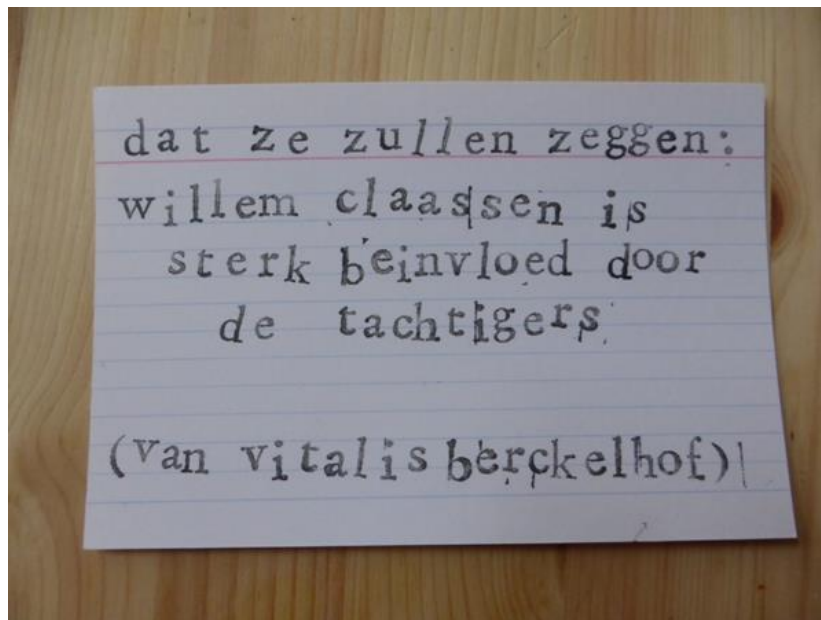 dat ze zullen zeggen:
willem claassen is
sterk beinvloed door
de tachtigers
(van vitalis berckelhof)